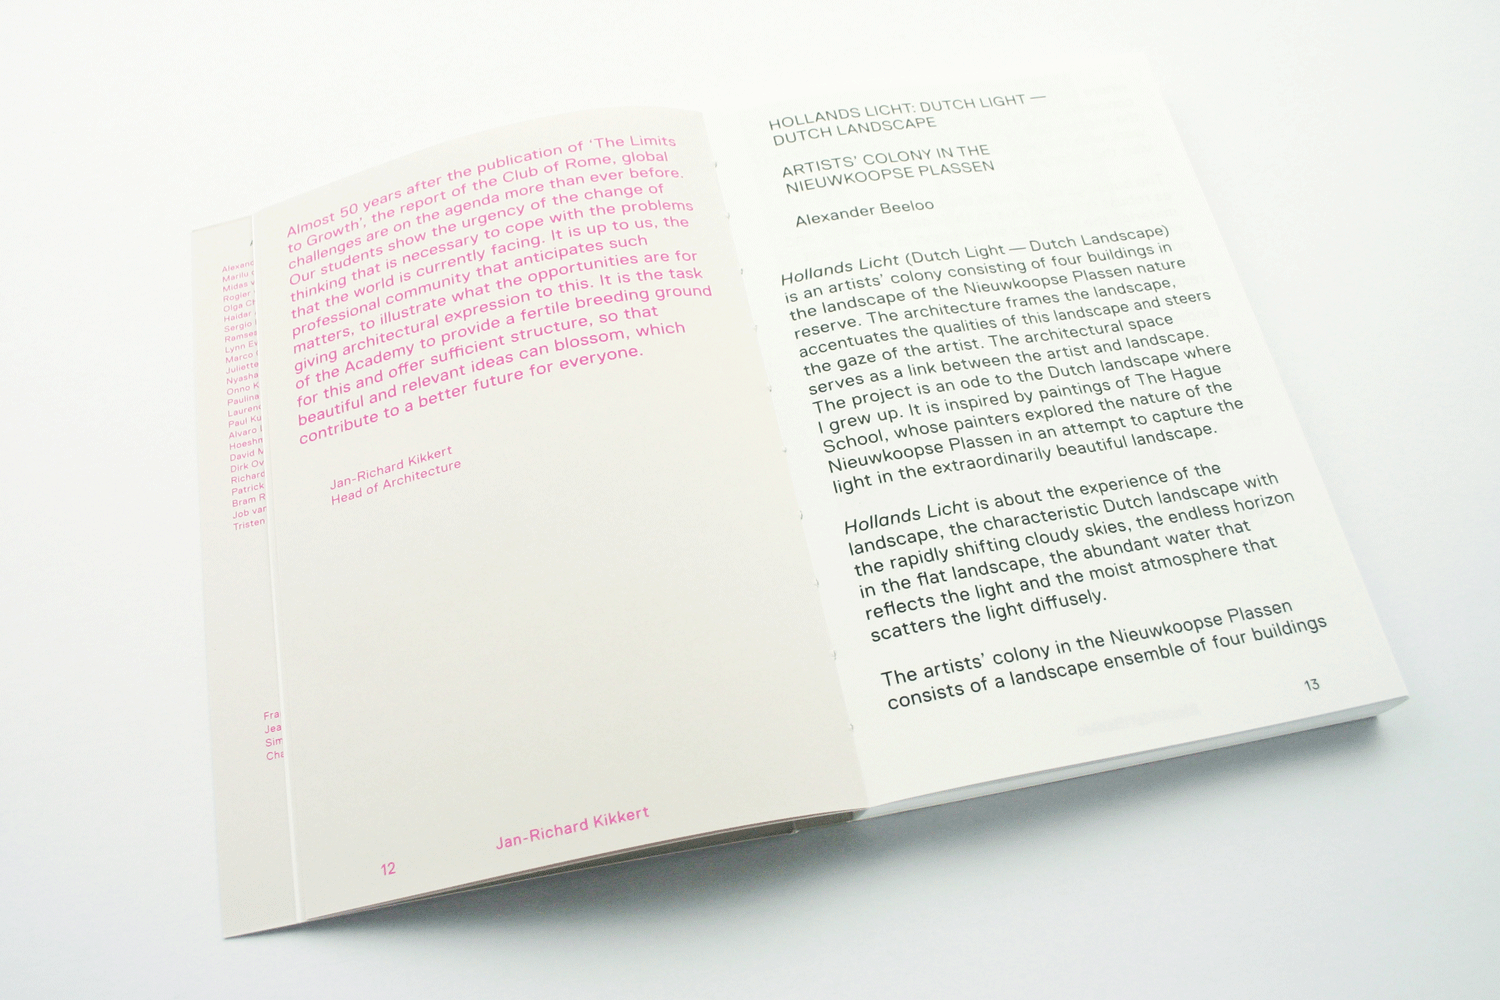 Marilu
Mides
Rogier
Olga
Haidar
Sergio
Ramses
Lynn
Marco
Juliette
Nyasha
Onno
Paulina
Paul
Alvaro
David
Dirk
Richard
Patrick
Bram
Job van
Tristen
Almost 50 years after the publication of ‘The Limits
to Growth’, the report of the Club of Rome, global
challenges are on the agenda more than ever before.
Our students show the urgency of the change of
thinking that is necessary to cope with the problems
that the world is currently facing. It is up to us, the
professional community that anticipates such
matters, to illustrate what the opportunities are for
giving architectural expression to this. It is the task
of the Academy to provide a fertile breeding ground
for this and offer sufficient structure, so that
beautiful and relevant ideas can blossom, which
contribute to a better future for everyone.
Jan-Richard Kikkert
Head of Architecture
12
Jan-Richard Kikkert
HOLLANDS LICHT: DUTCH LIGHT —
DUTCH LANDSCAPE
ARTISTS’ COLONY IN THE
NIEUWKOOPSE PLASSEN
Alexander Beeloo
Hollands Licht (Dutch Light — Dutch Landscape)
is an artists’ colony consisting of four buildings in
the landscape of the Nieuwkoopse Plassen nature
reserve. The architecture frames the landscape,
accentuates the qualities of this landscape and steers
the gaze of the artist. The architectural space
serves as a link between the artist and landscape.
The project is an ode to the Dutch landscape where
I grew up. It is inspired by paintings of The Hague
School, whose painters explored the nature of the
Nieuwkoopse Plassen in an attempt to capture the
light in the extraordinarily beautiful landscape.
Hollands Licht is about the experience of the
landscape, the characteristic Dutch landscape with
the rapidly shifting cloudy skies, the endless horizon
in the flat landscape, the abundant water that
reflects the light and the moist atmosphere that
scatters the light diffusely.
The artists’ colony in the Nieuwkoopse Plassen
consists of a landscape ensemble of four buildings
13